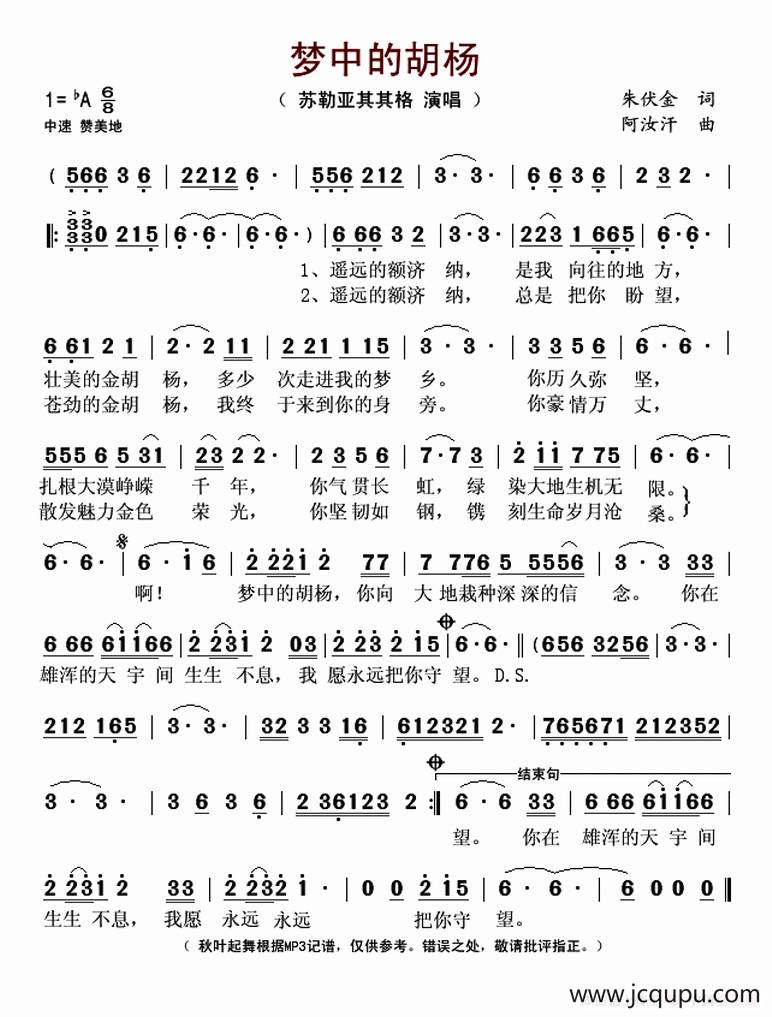 梦中的胡杨
1=♭A 6/8
( 苏勒亚其其格 演唱 )
朱伏金 词
中速 赞美地
阿汝汗 曲
( 566 3 6 | 2212 6· | 556 212 | 3· 3· | 6 6 3 6 | 2 3 2· |
‖: 33 33 0 215 | 6· 6· | 6· 6· ) | 6 66 3 2 | 3· 3· | 223 1 665 | 6· 6· |
1、遥远的额济 纳, 是我 向往的地 方,
2、遥远的额济 纳, 总是 把你 盼 望,
6 61 2 1 | 2· 2 11 | 2 21 1 15 | 3· 3· | 3 356 1 | 6· 6· |
壮美的金胡 杨, 多少 次走进我的梦 乡。 你历 久弥 坚,
苍劲的金胡 杨, 我终 于来到你的身 旁。 你豪 情万 丈,
5556 6 5 31 | 2 23 2· | 2 3 5 6 | 7· 7 3 | 2 11 7 75 | 6· 6· |
扎根大漠峥嵘 千 年, 你气 贯长 虹, 绿 染大地生机无 限。
散发魅力金色 荣 光, 你坚 韧如 钢, 镌 刻生命岁月沧 桑。
6· 6· | 6· 1 6 | 2 221 2 77 | 7 776 5 5556 | 3· 3 33 |
啊! 梦中的胡杨, 你向 大 地栽种深 深的信 念。 你在
6 66 61166 | 2 231 2 03 | 2 23 2 15 | 6· 6· ‖ (656 3256 | 3· 3· |
雄浑的天 宇 间 生生 不息, 我 愿永远把你守 望。D.S.
212 165 | 3· 3· | 32 3 3 16 | 612321 2· | 765671 212352 |
结束句
3· 3· | 3 6 3 6 | 2 36123 2 :‖ 6· 6 33 | 6 66 61166 |
望。 你在 雄浑的天 宇 间
2 231 2 33 | 2 231 3· | 0 0 2 15 | 6· 6· | 6 0 0 ‖
生生 不息, 我愿 永远 永远 把你守 望。
( 秋叶起舞根据MP3记谱,仅供参考。错误之处,敬请批评指正。)
www.jcqupu.com